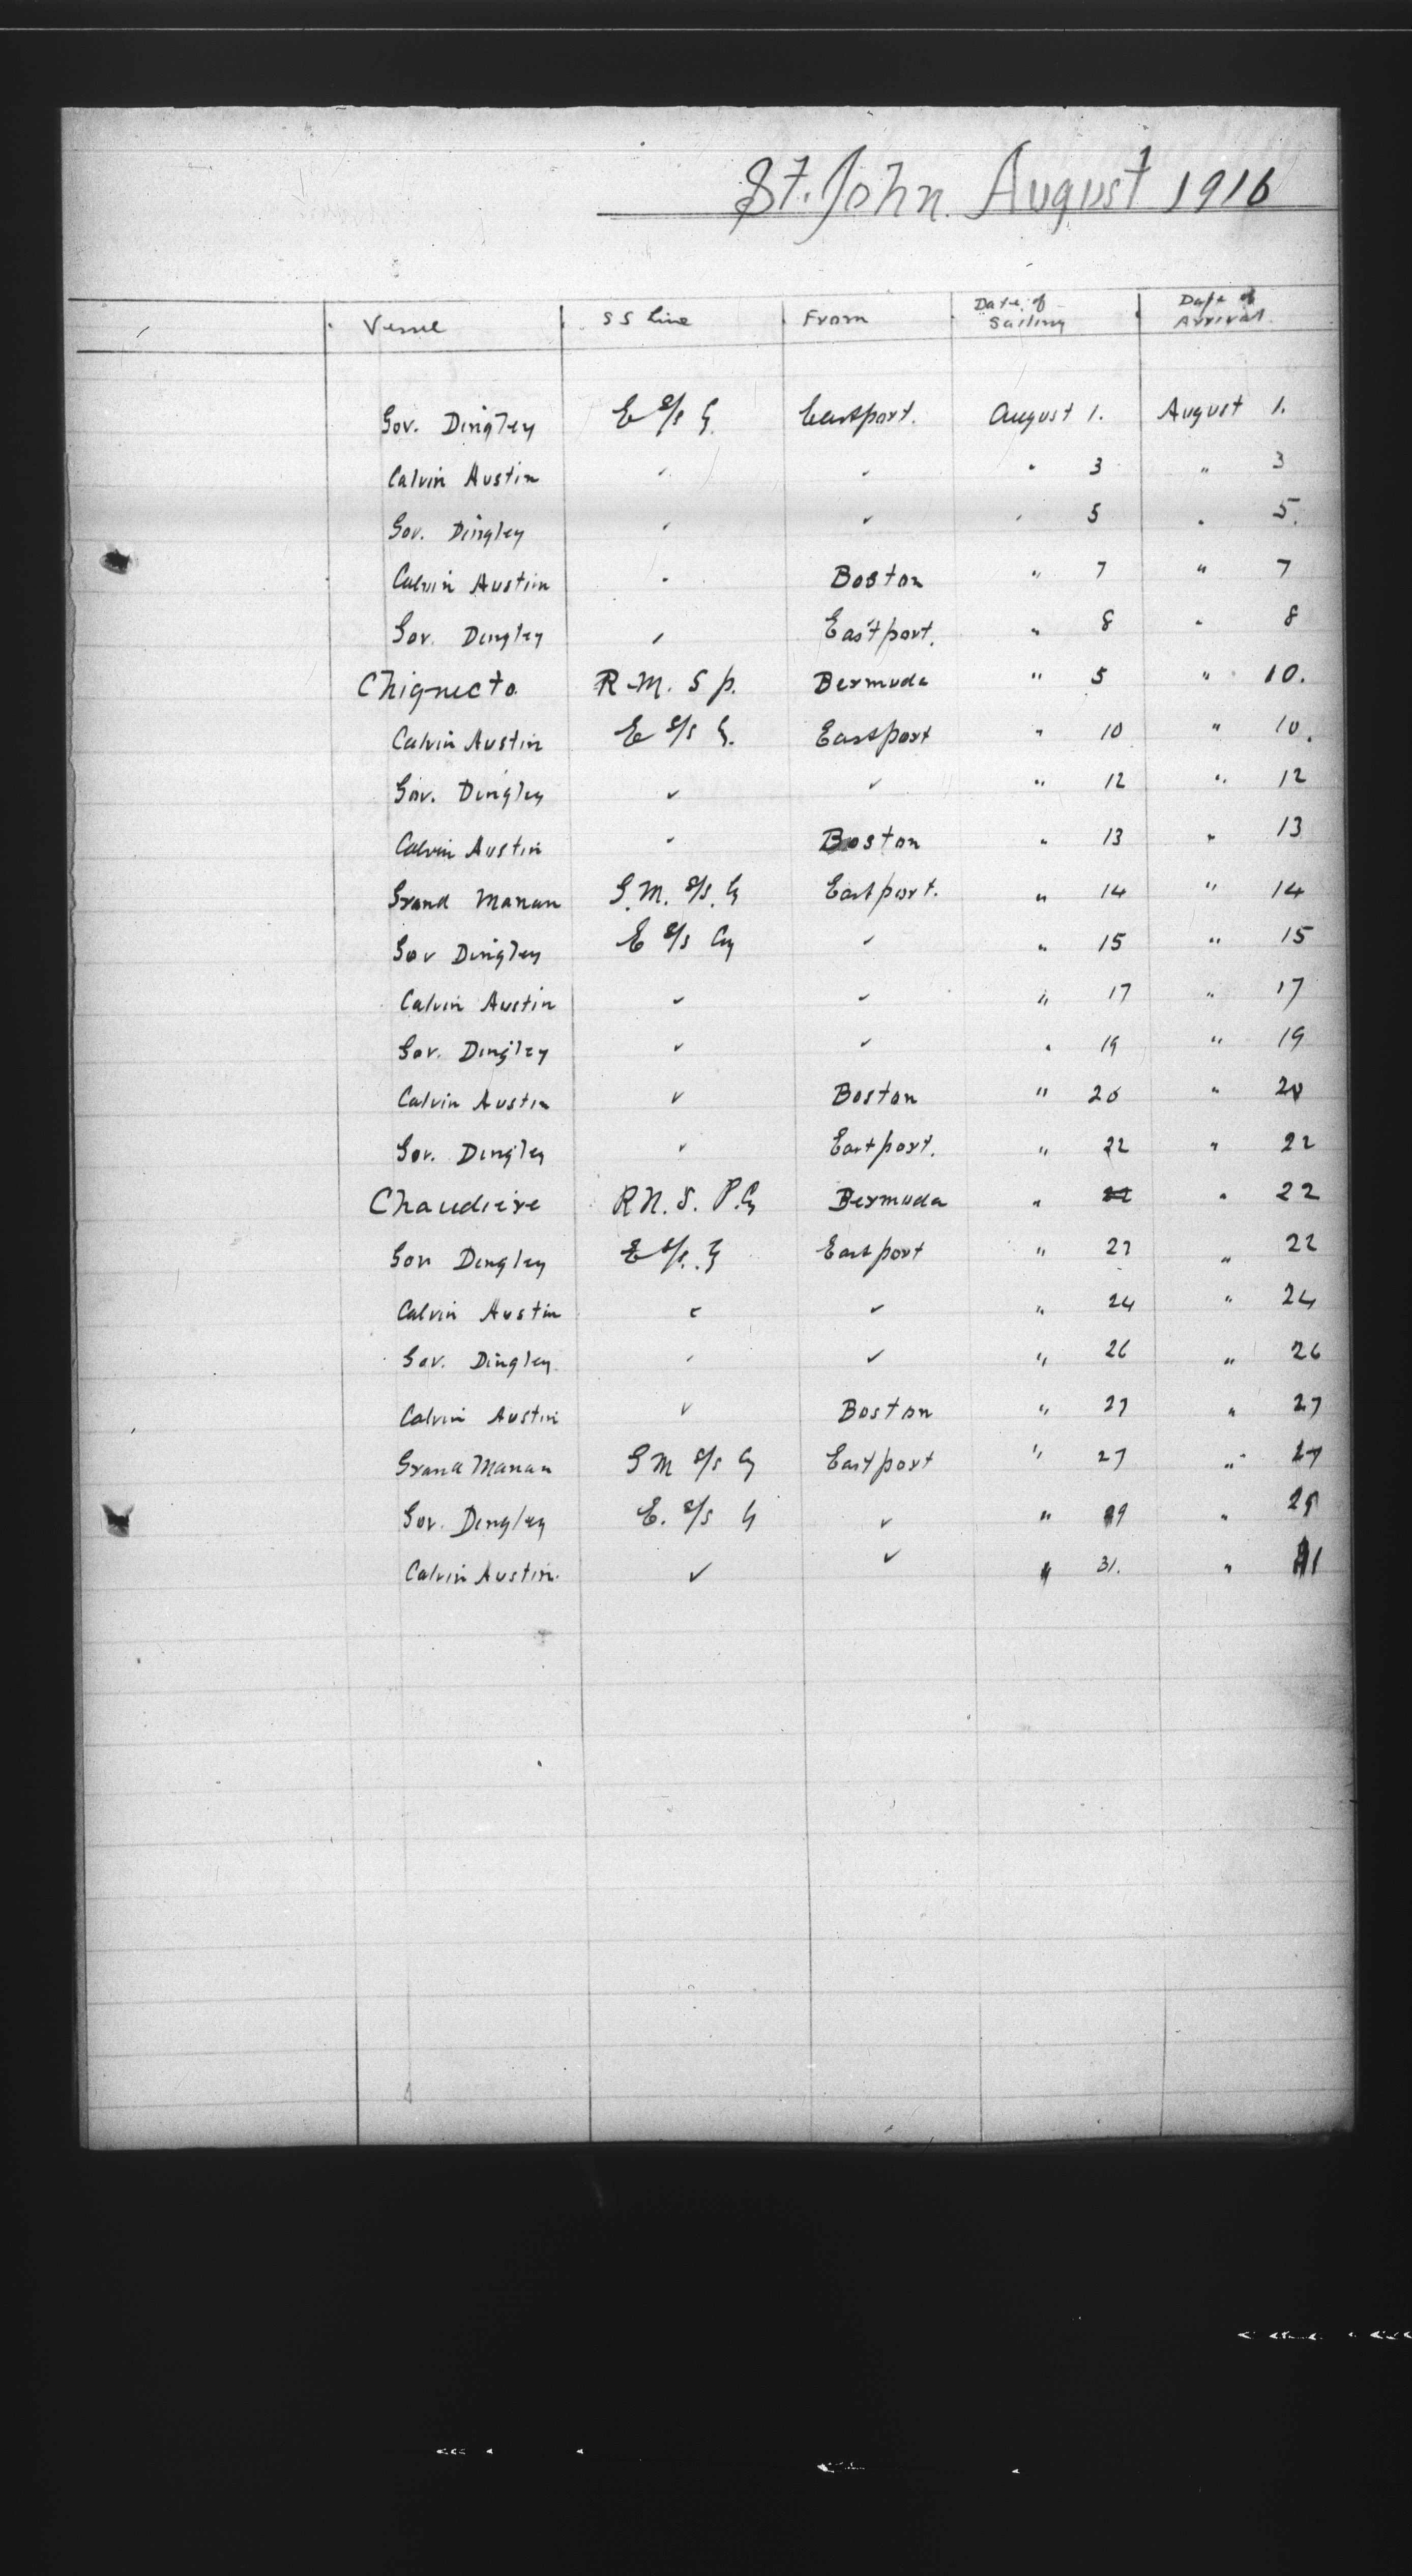 St. John. August 1916
Vessel SS Line From Date of Sailing Date of Arrival.
Gov. Dingley E S/S Cy. Eastport. August 1. August 1.
Calvin Austin " ✓ " 3 " 3
Gov. Dingley " ✓ " 5 " 5.
Calvin Austin " Boston " 7 " 7
Gov. Dingley " Eastport. " 8 " 8
Chignecto R.M. S P. Bermuda " 5 " 10.
Calvin Austin E S/S Cy. Eastport " 10 " 10.
Gov. Dingley ✓ ✓ " 12 " 12
Calvin Austin ✓ Boston " 13 " 13
Grand Manan G.M. S/S. Cy Eastport. " 14 " 14
Gov Dingley E S/S Cy ✓ " 15 " 15
Calvin Austin ✓ ✓ " 17 " 17
Gov. Dingley ✓ ✓ " 19 " 19
Calvin Austin ✓ Boston " 20 " 20
Gov. Dingley ✓ Eastport. " 22 " 22
Chaudiere R.M.S. P. Cy Bermuda " " 22
Gov Dingley E S/S. Cy Eastport " 22 " 22
Calvin Austin ✓ ✓ " 24 " 24
Gov. Dingley ✓ ✓ " 26 " 26
Calvin Austin ✓ Boston " 27 " 27
Grand Manan G M S/S Cy Eastport " 27 " 27
Gov. Dingley E. S/S Cy ✓ " 29 " 29
Calvin Austin. ✓ ✓ " 31. " 31